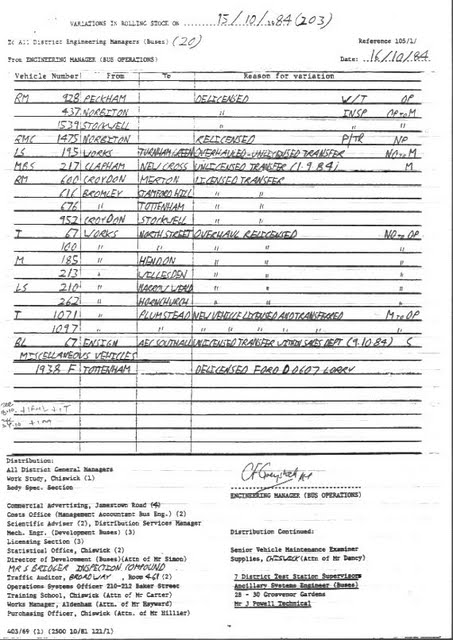 VARIATIONS IN ROLLING STOCK ON 15/10/1984 (203)
To All District Engineering Managers (Buses) (20) Reference 105/1/
From ENGINEERING MANAGER (BUS OPERATIONS) Date: 16/10/84
Vehicle Number From To Reason for variation
RM 928 PECKHAM DELICENSED W/T OP
437 NORBITON " INSP OP TO M
1539 STOCKWELL "
RMC 1475 NORBITON RELICENSED P/TR NP
LS 195 WORKS TURNHAM GREEN OVERHAULED - UNLICENSED TRANSFER NO TO M
MBS 217 CLAPHAM NEW CROSS UNLICENSED TRANSFER (1.9.84) M
RM 600 CROYDON MERTON LICENSED TRANSFER
616 BROMLEY STAMFORD HILL "
676 " TOTTENHAM "
952 CROYDON STOCKWELL "
T 67 WORKS NORTH STREET OVERHAUL RELICENSED NO TO OP
100 " " " " "
M 185 " HENDON " " "
213 " WILLESDEN " " "
LS 210 " HARROW WEALD " " "
262 " HORNCHURCH " " "
T 1071 PLUMSTEAD NEW VEHICLE LICENSED AND TRANSFERRED M TO OP
1097 " " " " " "
BL 67 ENSIGN AEC SOUTHALL UNLICENSED TRANSFER WITHIN SALES DEPT (9.10.84) S
MISCELLANEOUS VEHICLES
1938 F TOTTENHAM DELICENSED FORD D0607 LORRY
Distribution:
All District General Managers
Work Study, Chiswick (1)
Body Spec. Section
ENGINEERING MANAGER (BUS OPERATIONS)
Commercial Advertising, Jamestown Road
Costs Office (Management Accountant Bus Eng.) (2)
Scientific Adviser (2), Distribution Services Manager
Mech. Engr. (Development Buses) (3)
Licensing Section (3)
Statistical Office, Chiswick (2)
Director of Development (Buses)(Attn of Mr Simon)
MR S BRIDGER INSPECTION COMPOUND
Traffic Auditor, BROADWAY, Room
Operations Systems Officer 210-212 Baker Street
Training School, Chiswick (Attn of Mr Carter)
Works Manager, Aldenham (Attn of Mr Hayward)
Purchasing Officer, Chiswick (Attn. of Mr Hillier)
Distribution Continued:
Senior Vehicle Maintenance Examiner
Supplies, CHISWICK (Attn of Mr Dancy)
7 District Test Station Supervisors
Ancillary Systems Engineer (Buses)
28 - 30 Grosvenor Gardens
Mr J Powell Technical
403/69 (1) (2500 10/81 121/1)